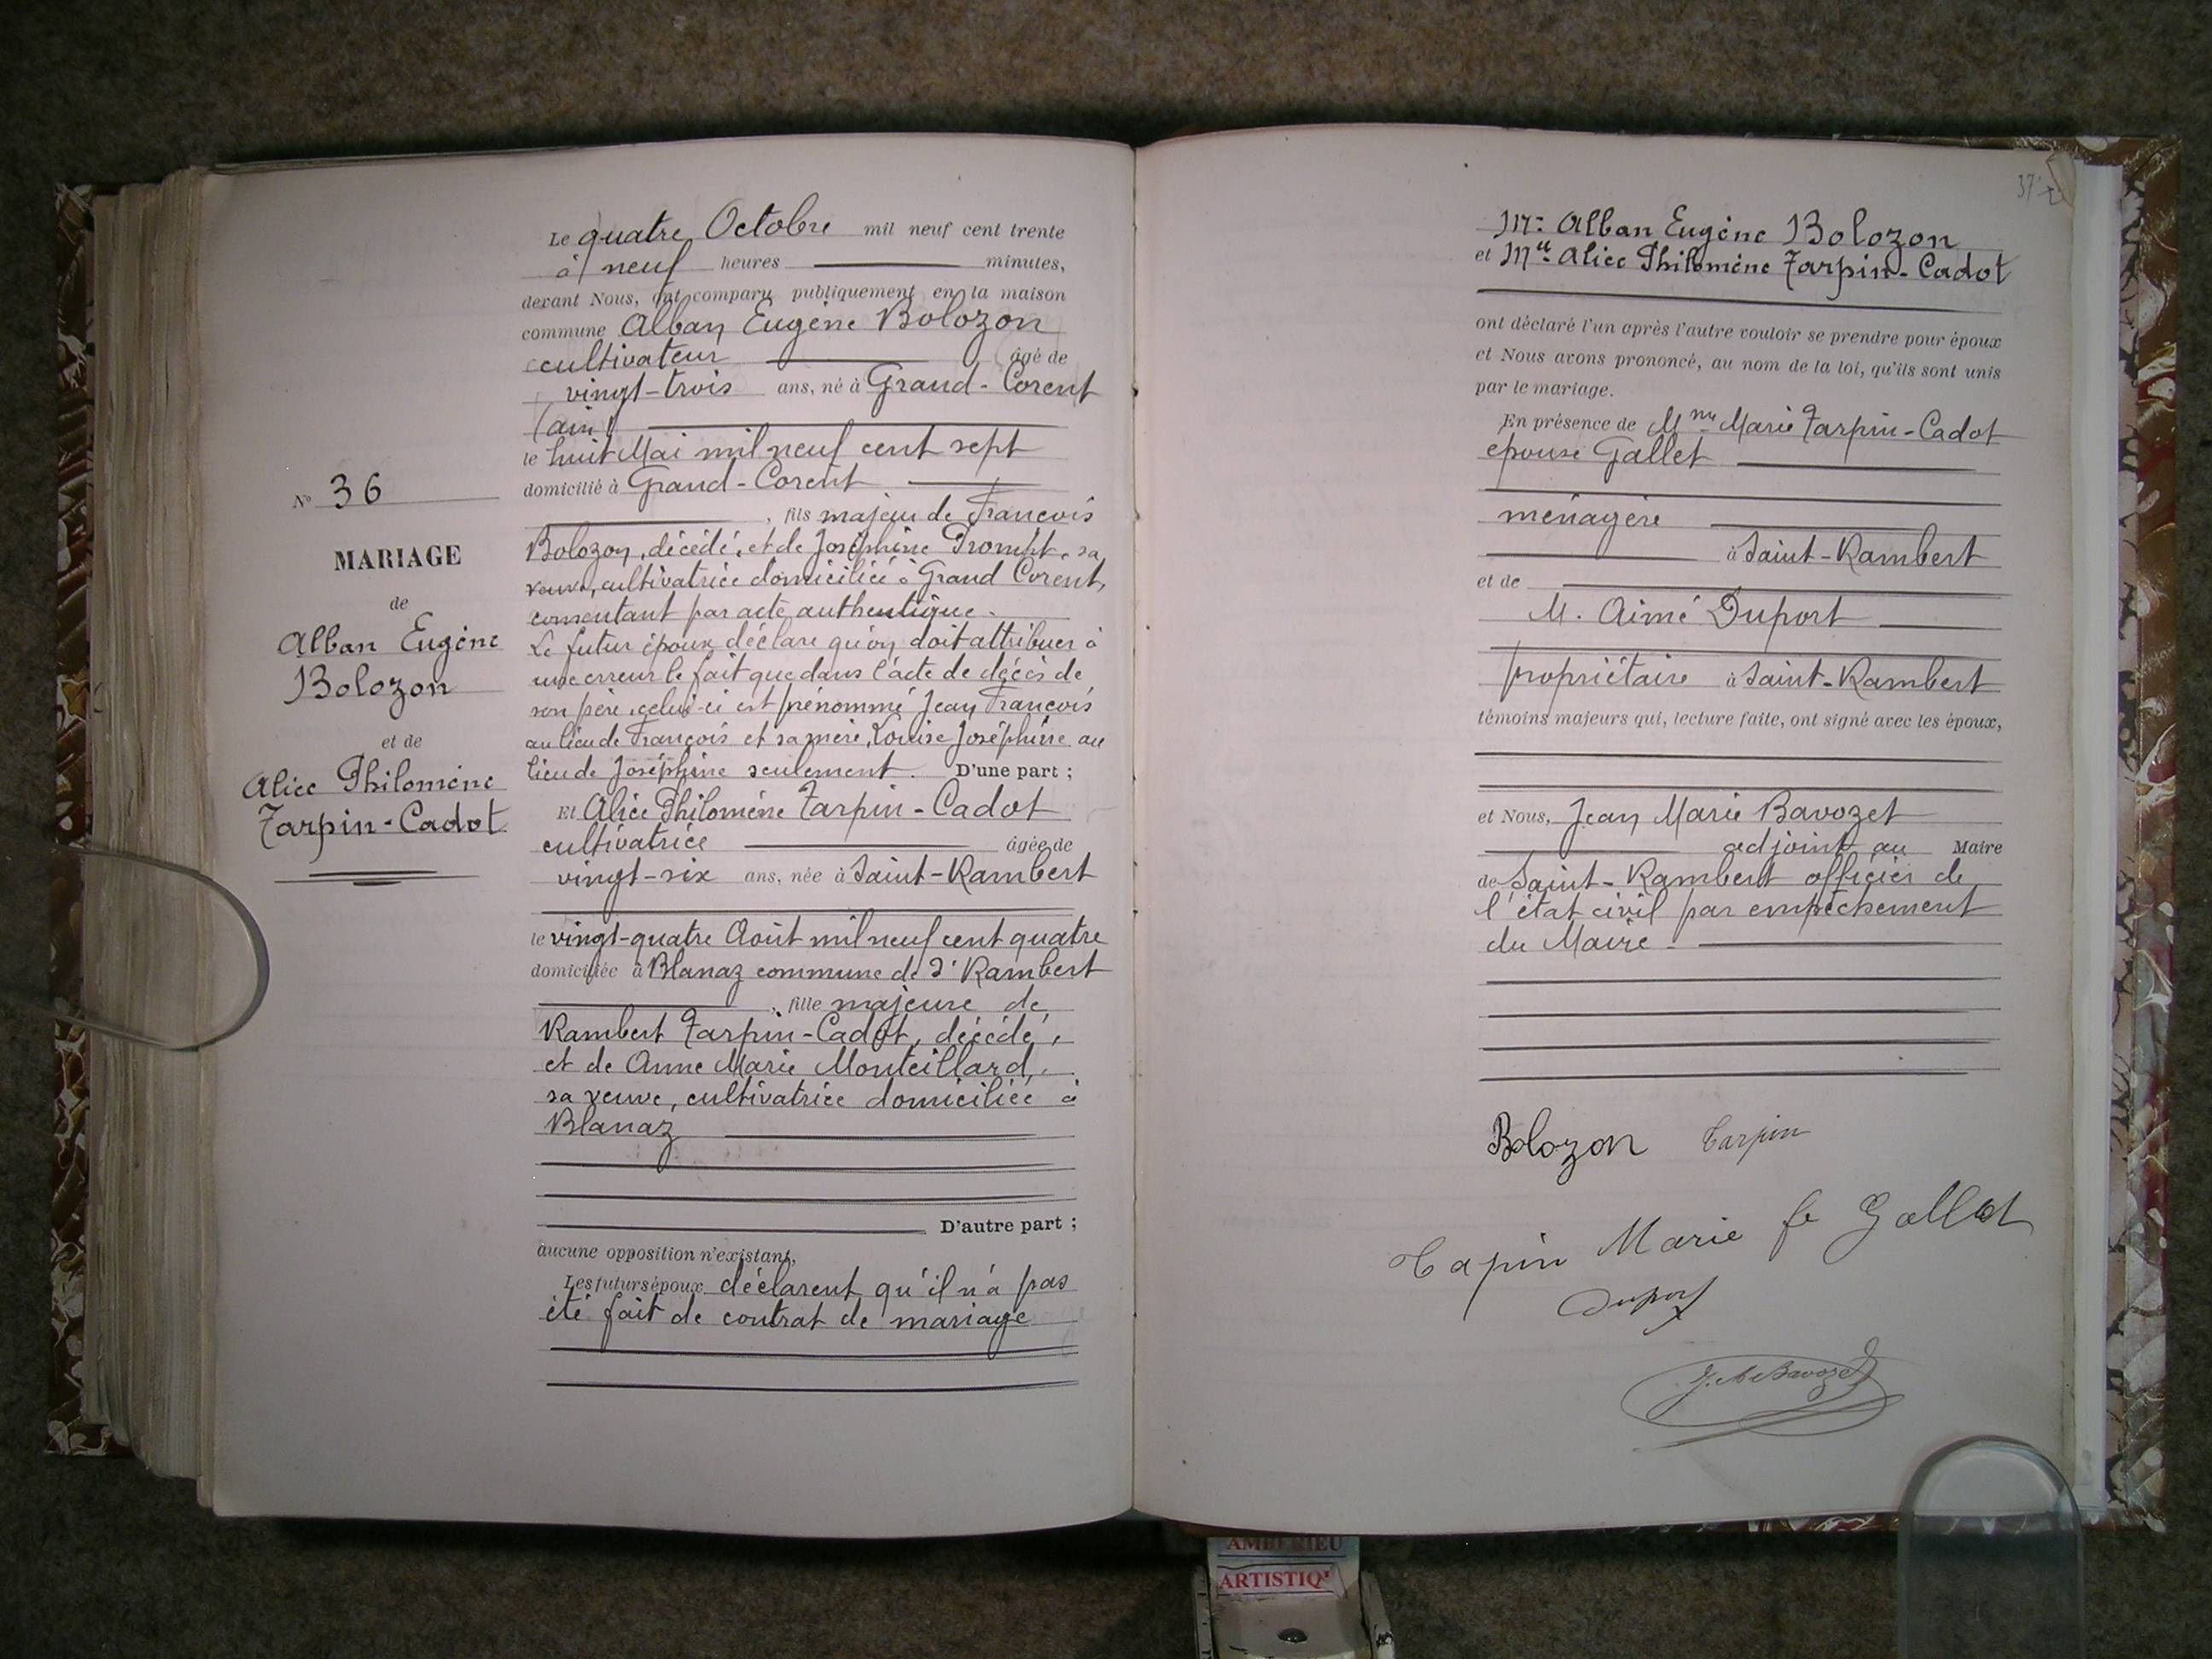 Le quatre Octobre mil neuf cent trente
à neuf heures minutes,
devant Nous, ont comparu publiquement en la maison
commune Alban Eugène Bolozon
cultivateur âgé de
vingt-trois ans, né à Grand-Corent
(ain)
le huit Mai mil neuf cent sept
domicilié à Grand-Corent
, fils majeur de François
Bolozon, décédé, et de Joséphine Prompt, sa
veuve, cultivatrice domiciliée à Grand Corent,
consentant par acte authentique.
Le futur époux déclare qu'on doit attribuer à
une erreur le fait que dans l'acte de décès de
son père, celui-ci est prénommé Jean François
au lieu de François et sa mère, Louise Joséphine au
lieu de Joséphine seulement. D'une part ;
Et Alice Philomène Tarpin-Cadot
cultivatrice âgée de
vingt-six ans, née à Saint-Rambert
le vingt-quatre Août mil neuf cent quatre
domiciliée à Blanaz commune de St Rambert
, fille majeure de
Rambert Tarpin-Cadot, décédé,
et de Anne Marie Monteillard,
sa veuve, cultivatrice domiciliée à
Blanaz
D'autre part ;
aucune opposition n'existant,
Les futurs époux déclarent qu'il n'a pas
été fait de contrat de mariage
No 36
MARIAGE
de
Alban Eugène
Bolozon
et de
Alice Philomène
Tarpin-Cadot
37
Mr Alban Eugène Bolozon
et Mlle Alice Philomène Tarpin-Cadot
ont déclaré l'un après l'autre vouloir se prendre pour époux
et Nous avons prononcé, au nom de la loi, qu'ils sont unis
par le mariage.
En présence de Mme Marie Tarpin-Cadot
épouse Gallet
ménagère
à Saint-Rambert
et de
M. Aimé Duport
propriétaire à Saint-Rambert
témoins majeurs qui, lecture faite, ont signé avec les époux,
et Nous, Jean Marie Bavozet
adjoint au Maire
de Saint-Rambert officier de
l'état civil par empêchement
du Maire.
Bolozon Tarpin
Tapin Marie fe Gallet
Duport
J. M Bavozet
AMBERIEU
ARTISTIQ